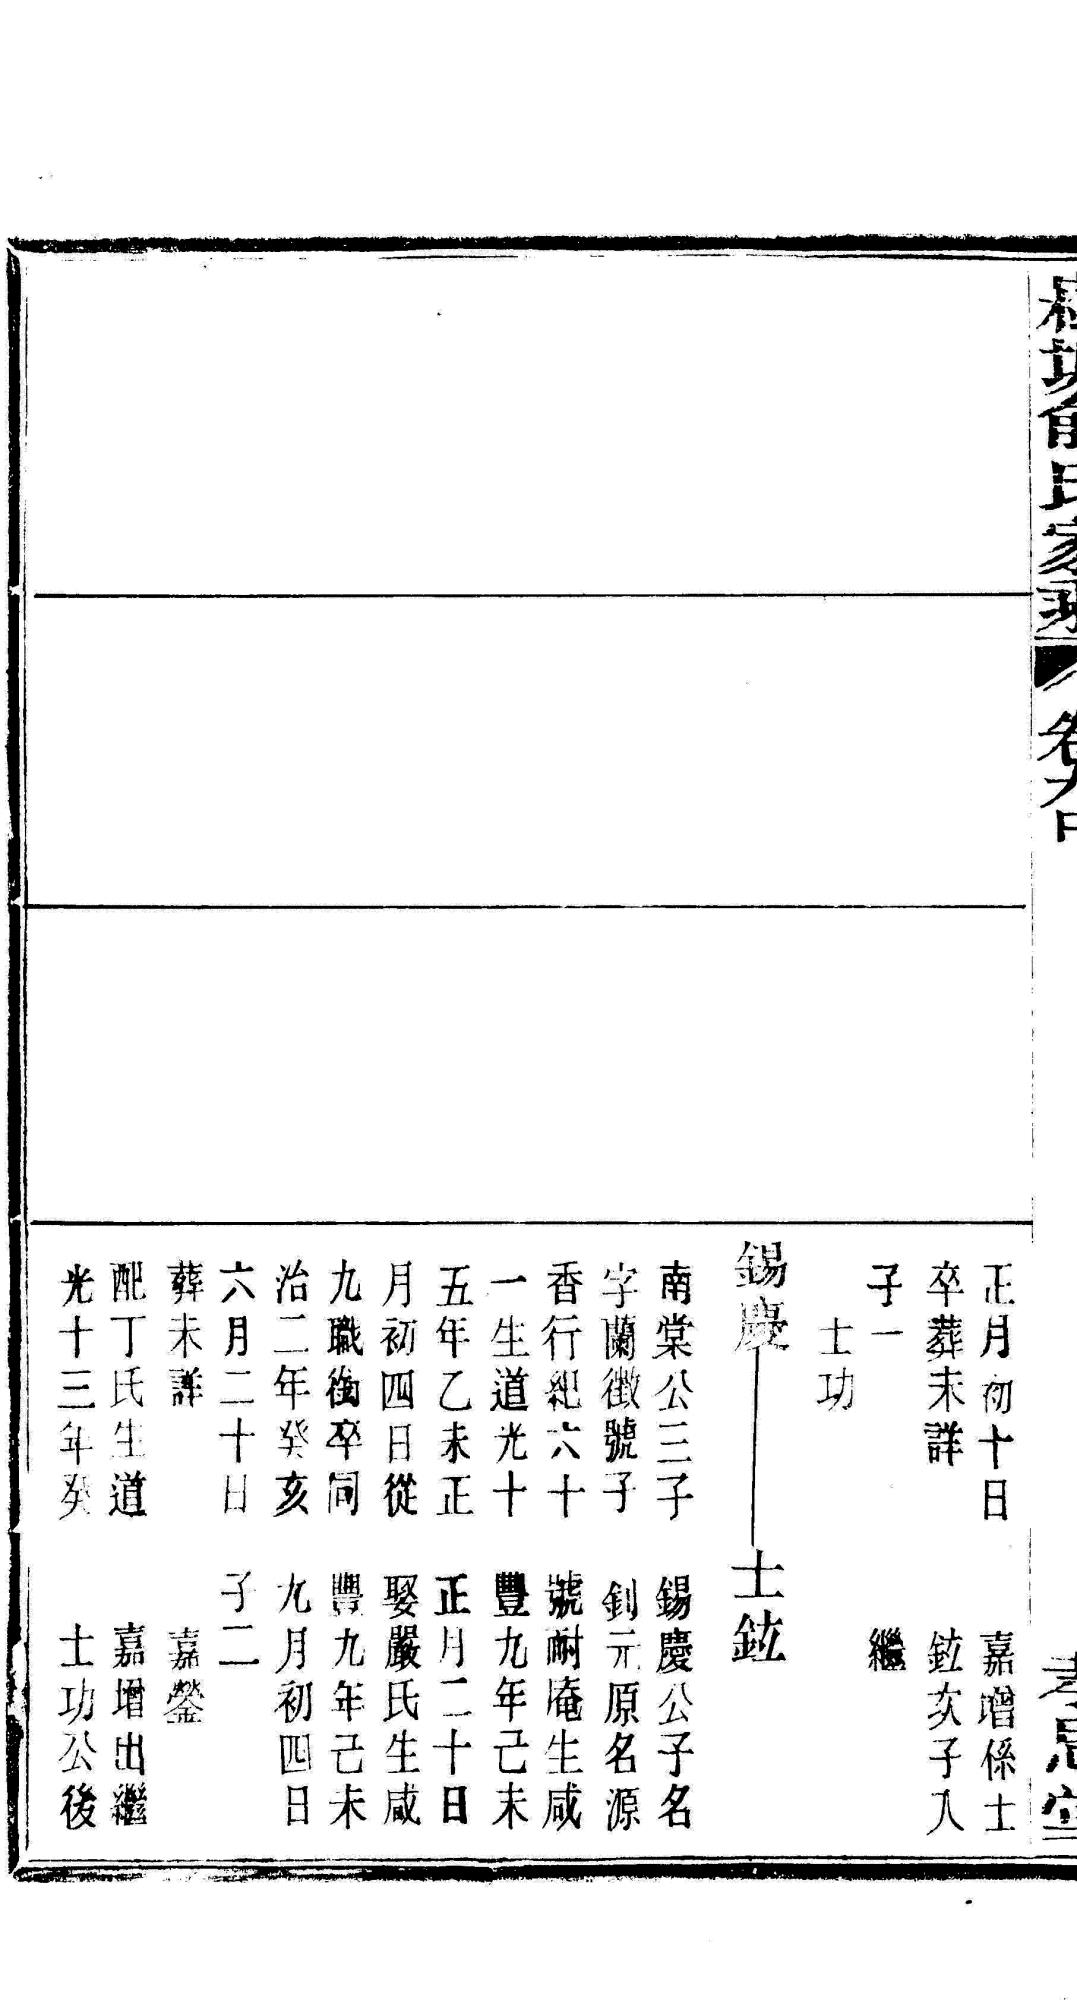 俞氏家乘
卷九中
孝思堂
正月初十日
卒葬未詳
子一
士功
嘉增係士
鈜次子入
繼
錫慶
士鈜
南棠公三子
字蘭徵號子
香行紀六十
一生道光十
五年乙未正
月初四日從
九職銜卒同
治二年癸亥
六月二十日
葬未詳
配丁氏生道
光十三年癸
錫慶公子名
釗元原名源
號耐庵生咸
豐九年己未
正月二十日
娶嚴氏生咸
豐九年己未
九月初四日
子二
嘉鎣
嘉增出繼
士功公後